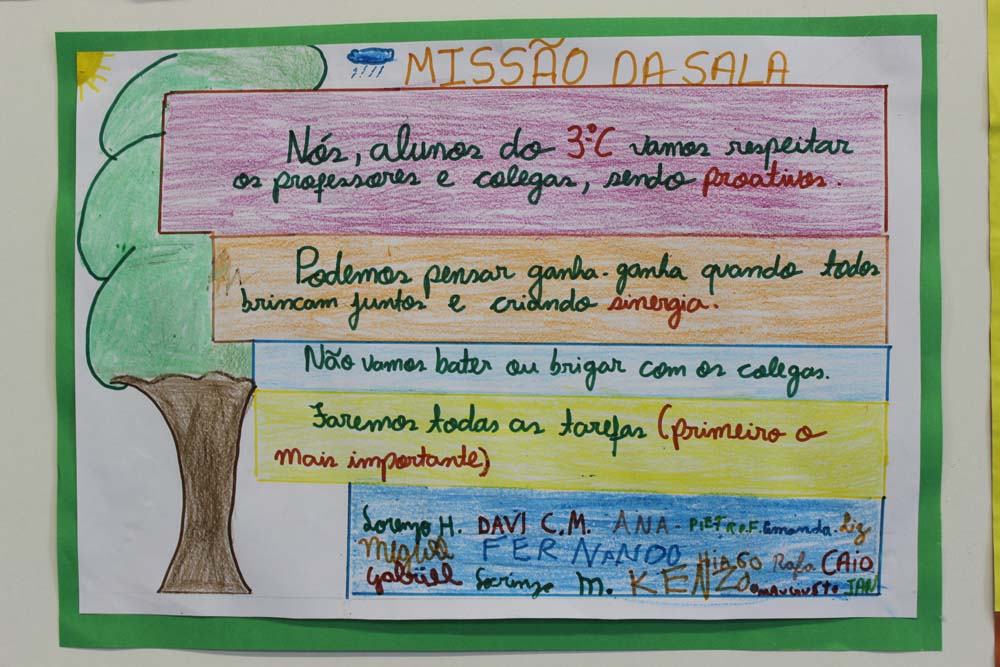 MISSÃO DA SALA
Nós, alunos do 3ºC vamos respeitar
os professores e colegas, sendo proativos.
Podemos pensar ganha-ganha quando todos
brincam juntos e criando sinergia.
Não vamos bater ou brigar com os colegas.
Faremos todas as tarefas (primeiro o
mais importante)
Lorenzo H. DAVI C.M. ANA - PIETRO F. Amanda Liz
Miguel FERNANDO HIAGO Rafa CAIO
Gabriel M. KENZO AUGUSTO IAN